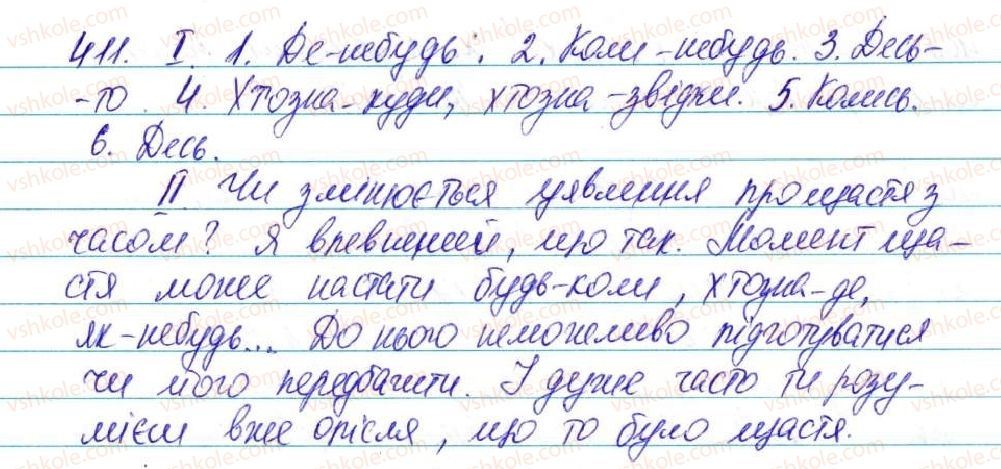 411. I. 1. Де-небудь. 2. Коли-небудь. 3. Десь-
-то. 4. Хтозна-куди, хтозна-звідки. 5. Колись.
6. Десь.
II Чи змінюється уявлення про щастя з
часом? Я впевнений, що так. Момент ща-
стя може настати будь-коли, хтозна-де,
як-небудь... До нього неможливо підготуватися
чи його передбачити. І дуже часто ти розу-
мієш вже опісля, що то було щастя.